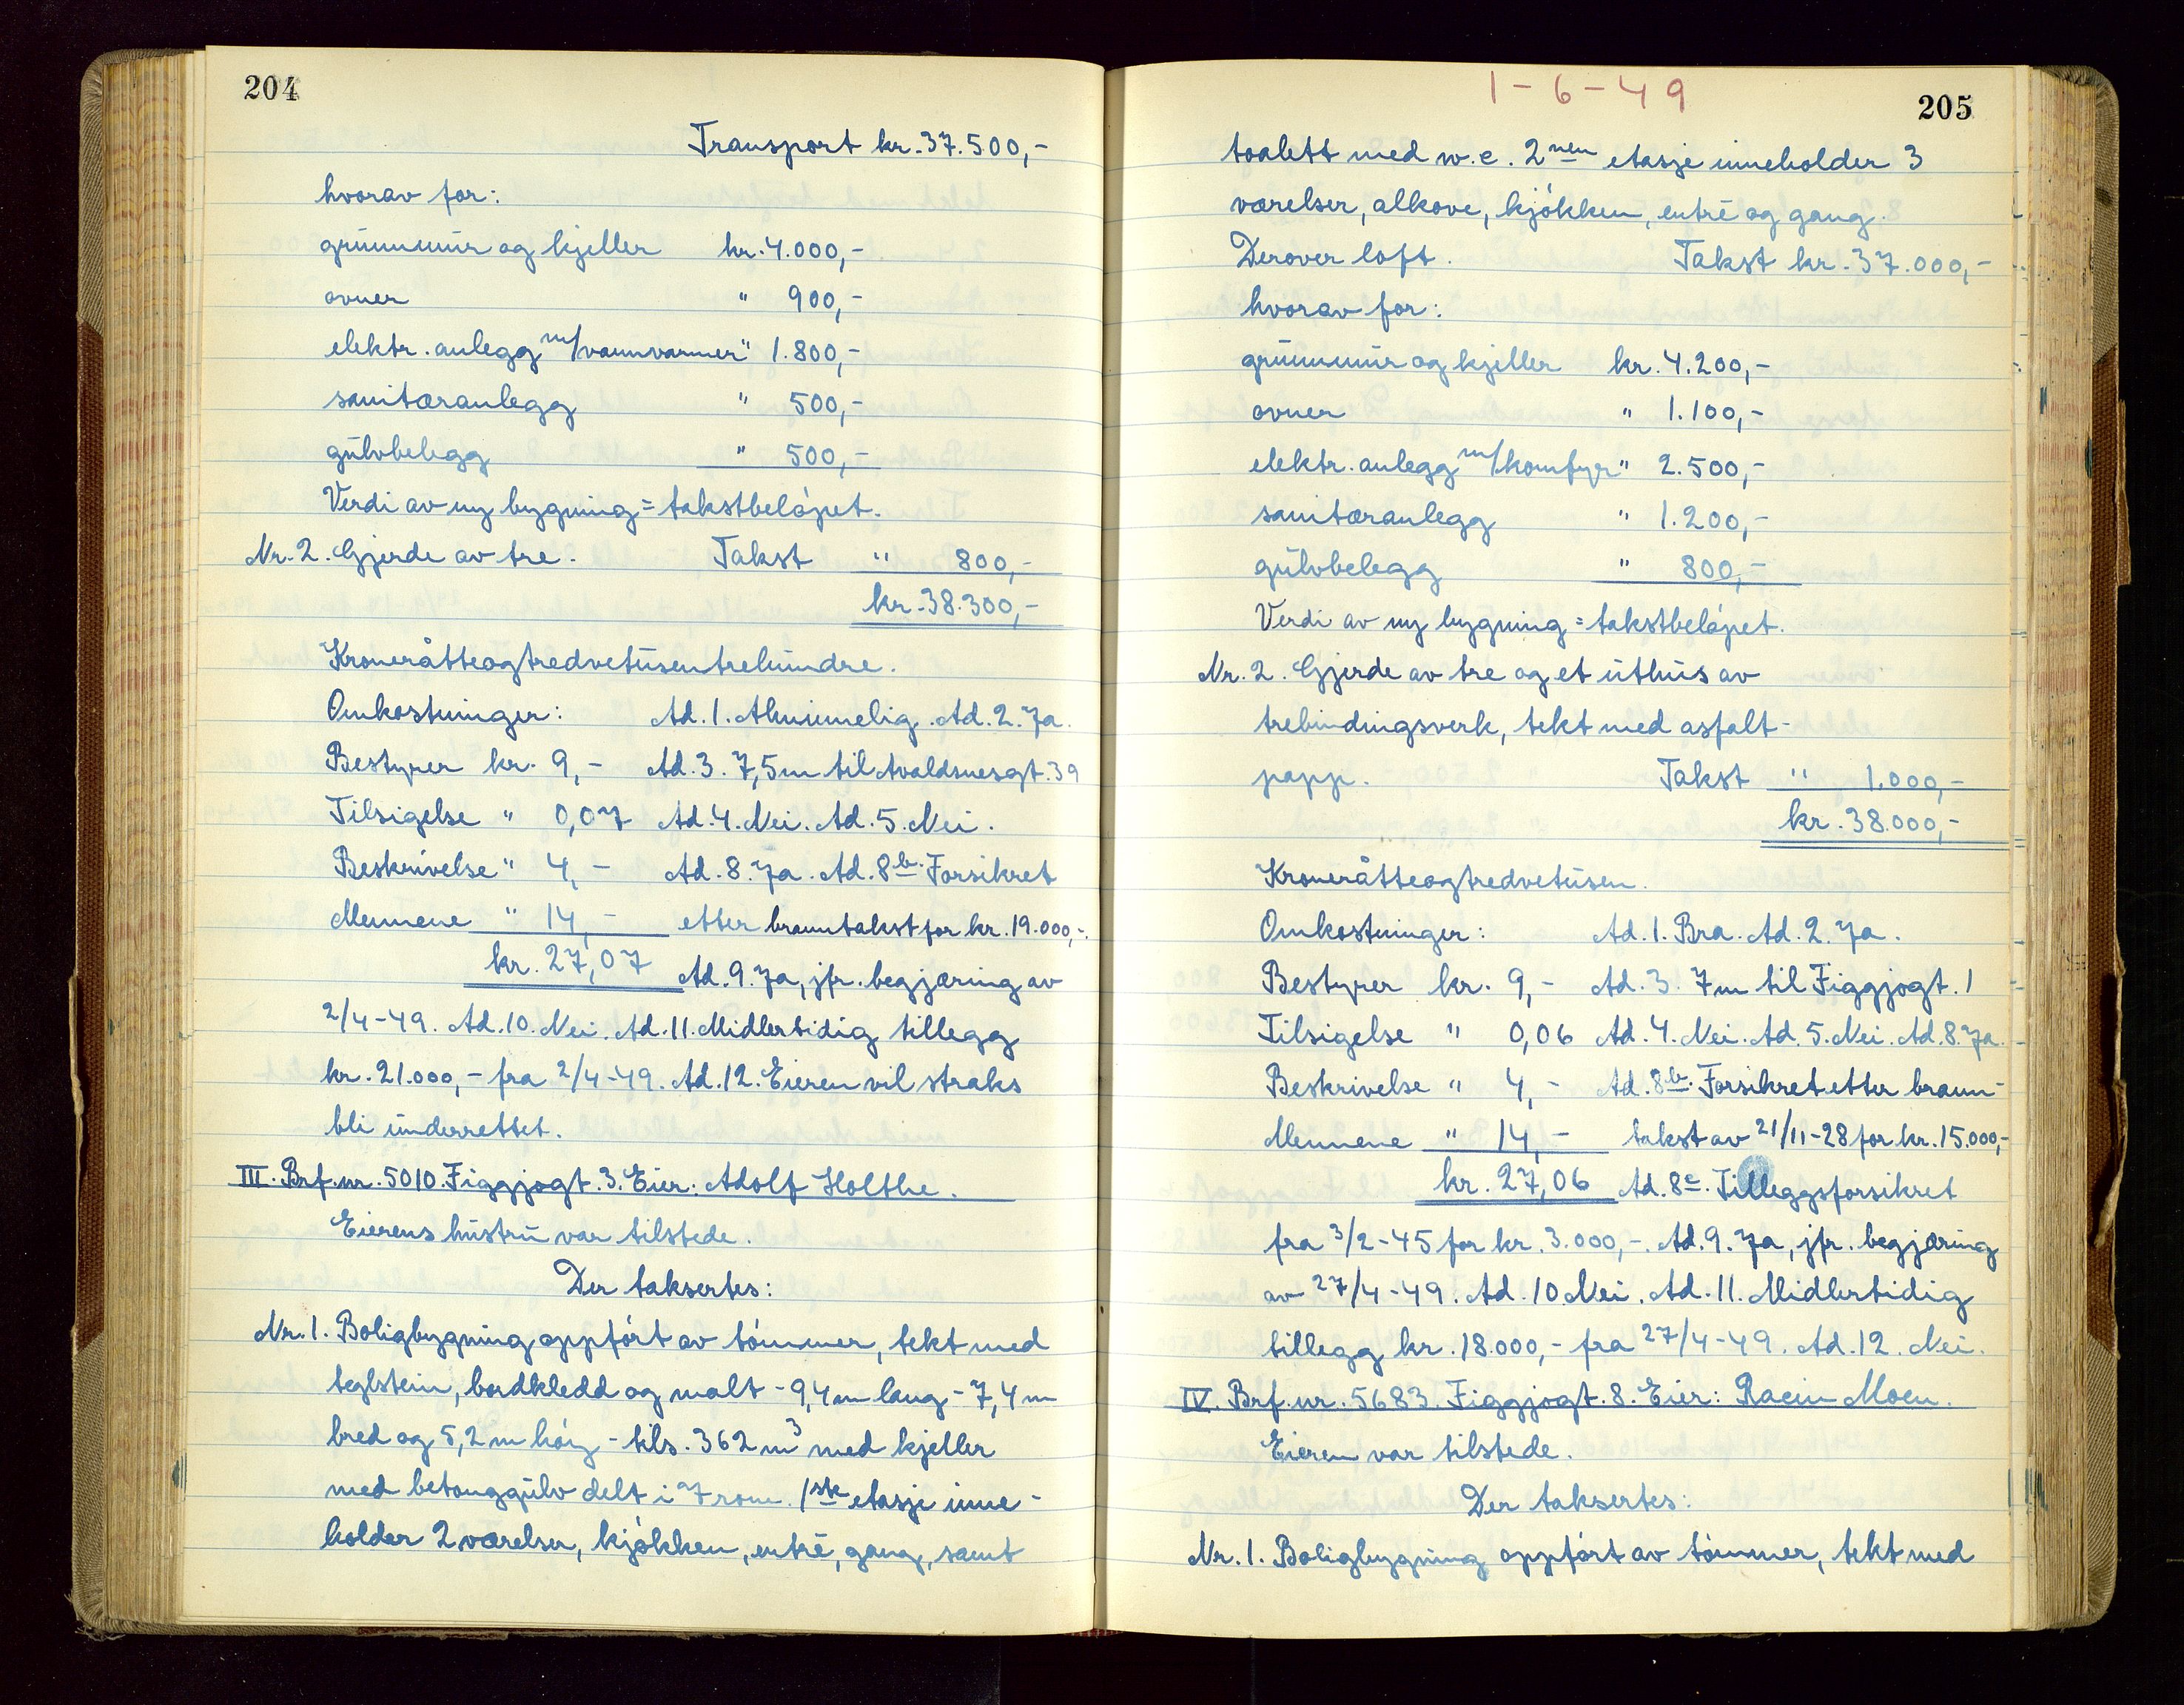 204
Transport kr. 37.500,-
hvorav for:
grunnmur og kjeller kr. 4.000,-
ovner " 900,-
elektr. anlegg m/vannvarmer " 1.800,-
sanitæranlegg " 500,-
gulvbelegg " 500,-
Verdi av ny bygning = takstbeløpet.
Nr. 2. Gjerde av tre. Takst " 800,-
kr. 38.300,-
Kroneråtteogtredvetusentrehundre.
Omkostninger: Ad. 1. Alminnelig. Ad. 2. Ja.
Bestyrer kr. 9,- Ad. 3. 7,5 m til Avaldsnesgt. 39
Tilsigelse " 0,07 Ad. 4. Nei. Ad. 5. Nei.
Beskrivelse " 4,- Ad. 8. Ja. Ad. 8b. Forsikret
Mennene " 14,- etter branntakst for kr. 19.000,-.
kr. 27,07 Ad. 9. Ja, jfr. begjæring av
2/4-49. Ad. 10. Nei. Ad. 11. Midlertidig tillegg
kr. 21.000,- fra 2/4-49. Ad. 12. Eieren vil straks
bli underrettet.
III. Brf. nr. 5010. Figgjogt. 3. Eier: Adolf Holthe.
Eierens hustru var tilstede.
Der taksertes:
Nr. 1. Boligbygning oppført av tömmer, tekt med
teglstein, bordkledd og malt - 9,4 m lang - 7,4 m
bred og 5,2 m höy - tils. 362 m3 med kjeller
med betonggulv delt i 7 rom. 1ste etasje inne-
holder 2 værelser, kjøkken, entré, gang, samt
1-6-49
205
toalett med w.c. 2nen etasje inneholder 3
værelser, alkove, kjøkken, entré og gang.
Derover loft. Takst kr. 37.000,-
hvorav for:
grunnmur og kjeller kr. 4.200,-
ovner " 1.100,-
elektr. anlegg m/komfyr " 2.500,-
sanitæranlegg " 1.200,-
gulvbelegg " 800,-
Verdi av ny bygning = takstbeløpet.
Nr. 2. Gjerde av tre og et uthus av
trebindingsverk, tekt med asfalt-
papp. Takst " 1.000,-
kr. 38.000,-
Kroneråtteogtredvetusen.
Omkostninger: Ad. 1. Bra. Ad. 2. Ja.
Bestyrer kr. 9,- Ad. 3. 7 m til Figgjogt. 1
Tilsigelse " 0,06 Ad. 4. Nei. Ad. 5. Nei. Ad. 8. Ja.
Beskrivelse " 4,- Ad. 8b. Forsikret etter brann-
Mennene " 14,- takst av 21/11-28 for kr. 15.000,-
kr. 27,06 Ad. 8c. Tilleggsforsikret
fra 3/2-45 for kr. 3.000,-. Ad. 9. Ja, jfr. begjæring
av 27/4-49. Ad. 10. Nei. Ad. 11. Midlertidig
tillegg kr. 18.000,- fra 27/4-49. Ad. 12. Nei.
IV. Brf. nr. 5683. Figgjogt. 8. Eier: Moen.
Eieren var tilstede.
Der taksertes:
Nr. 1. Boligbygning oppført av tömmer, tekt med